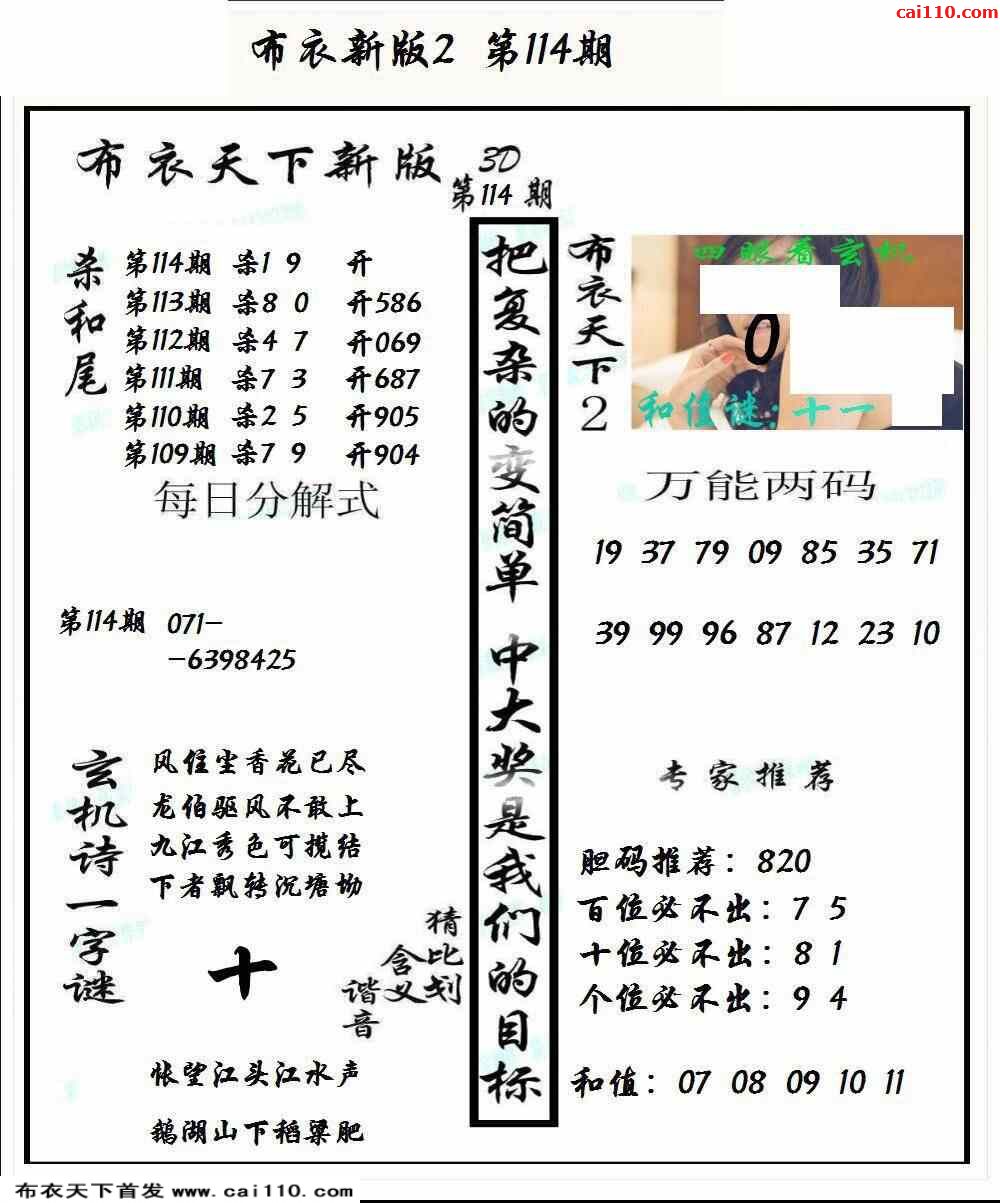 cai110.com
布衣新版2 第114期
布衣天下新版
3D
第114期
杀和尾
第114期 杀1 9 开
第113期 杀8 0 开586
第112期 杀4 7 开069
第111期 杀7 3 开687
第110期 杀2 5 开905
第109期 杀7 9 开904
每日分解式
第114期 071-
-6398425
玄机诗一字谜
风住尘香花已尽
龙伯驱风不敢上
九江秀色可揽结
下者飘转沉塘坳
十
猜比划
含义
谐音
怅望江头江水声
鹅湖山下稻粱肥
把复杂的变简单 中大奖是我们的目标
布衣天下2
四眼看玄机
0
和值谜:十一
万能两码
19 37 79 09 85 35 71
39 99 96 87 12 23 10
专家推荐
胆码推荐：820
百位必不出：7 5
十位必不出：8 1
个位必不出：9 4
和值：07 08 09 10 11
布衣天下首发 www.cai110.com